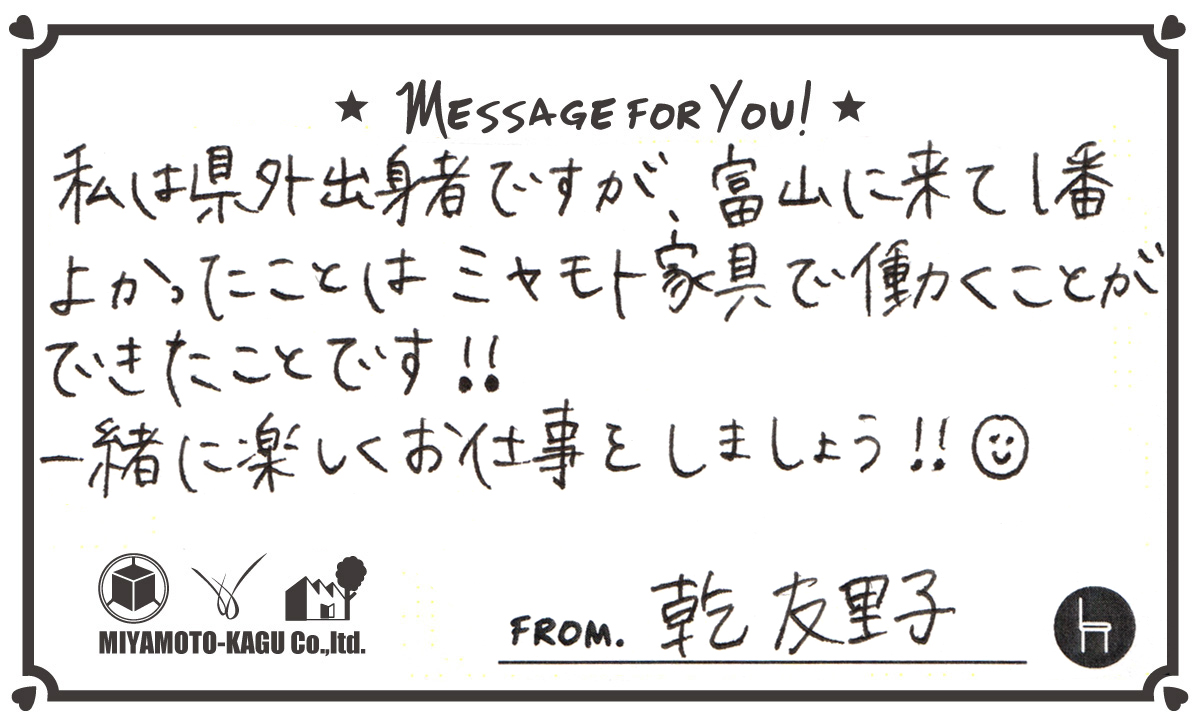 ★ MESSAGE FOR YOU! ★
私は県外出身者ですが、富山に来て1番
よかったことはミヤモト家具で働くことが
できたことです!!
一緒に楽しくお仕事をしましょう!!
MIYAMOTO-KAGU Co.,ltd.
FROM. 乾 友里子